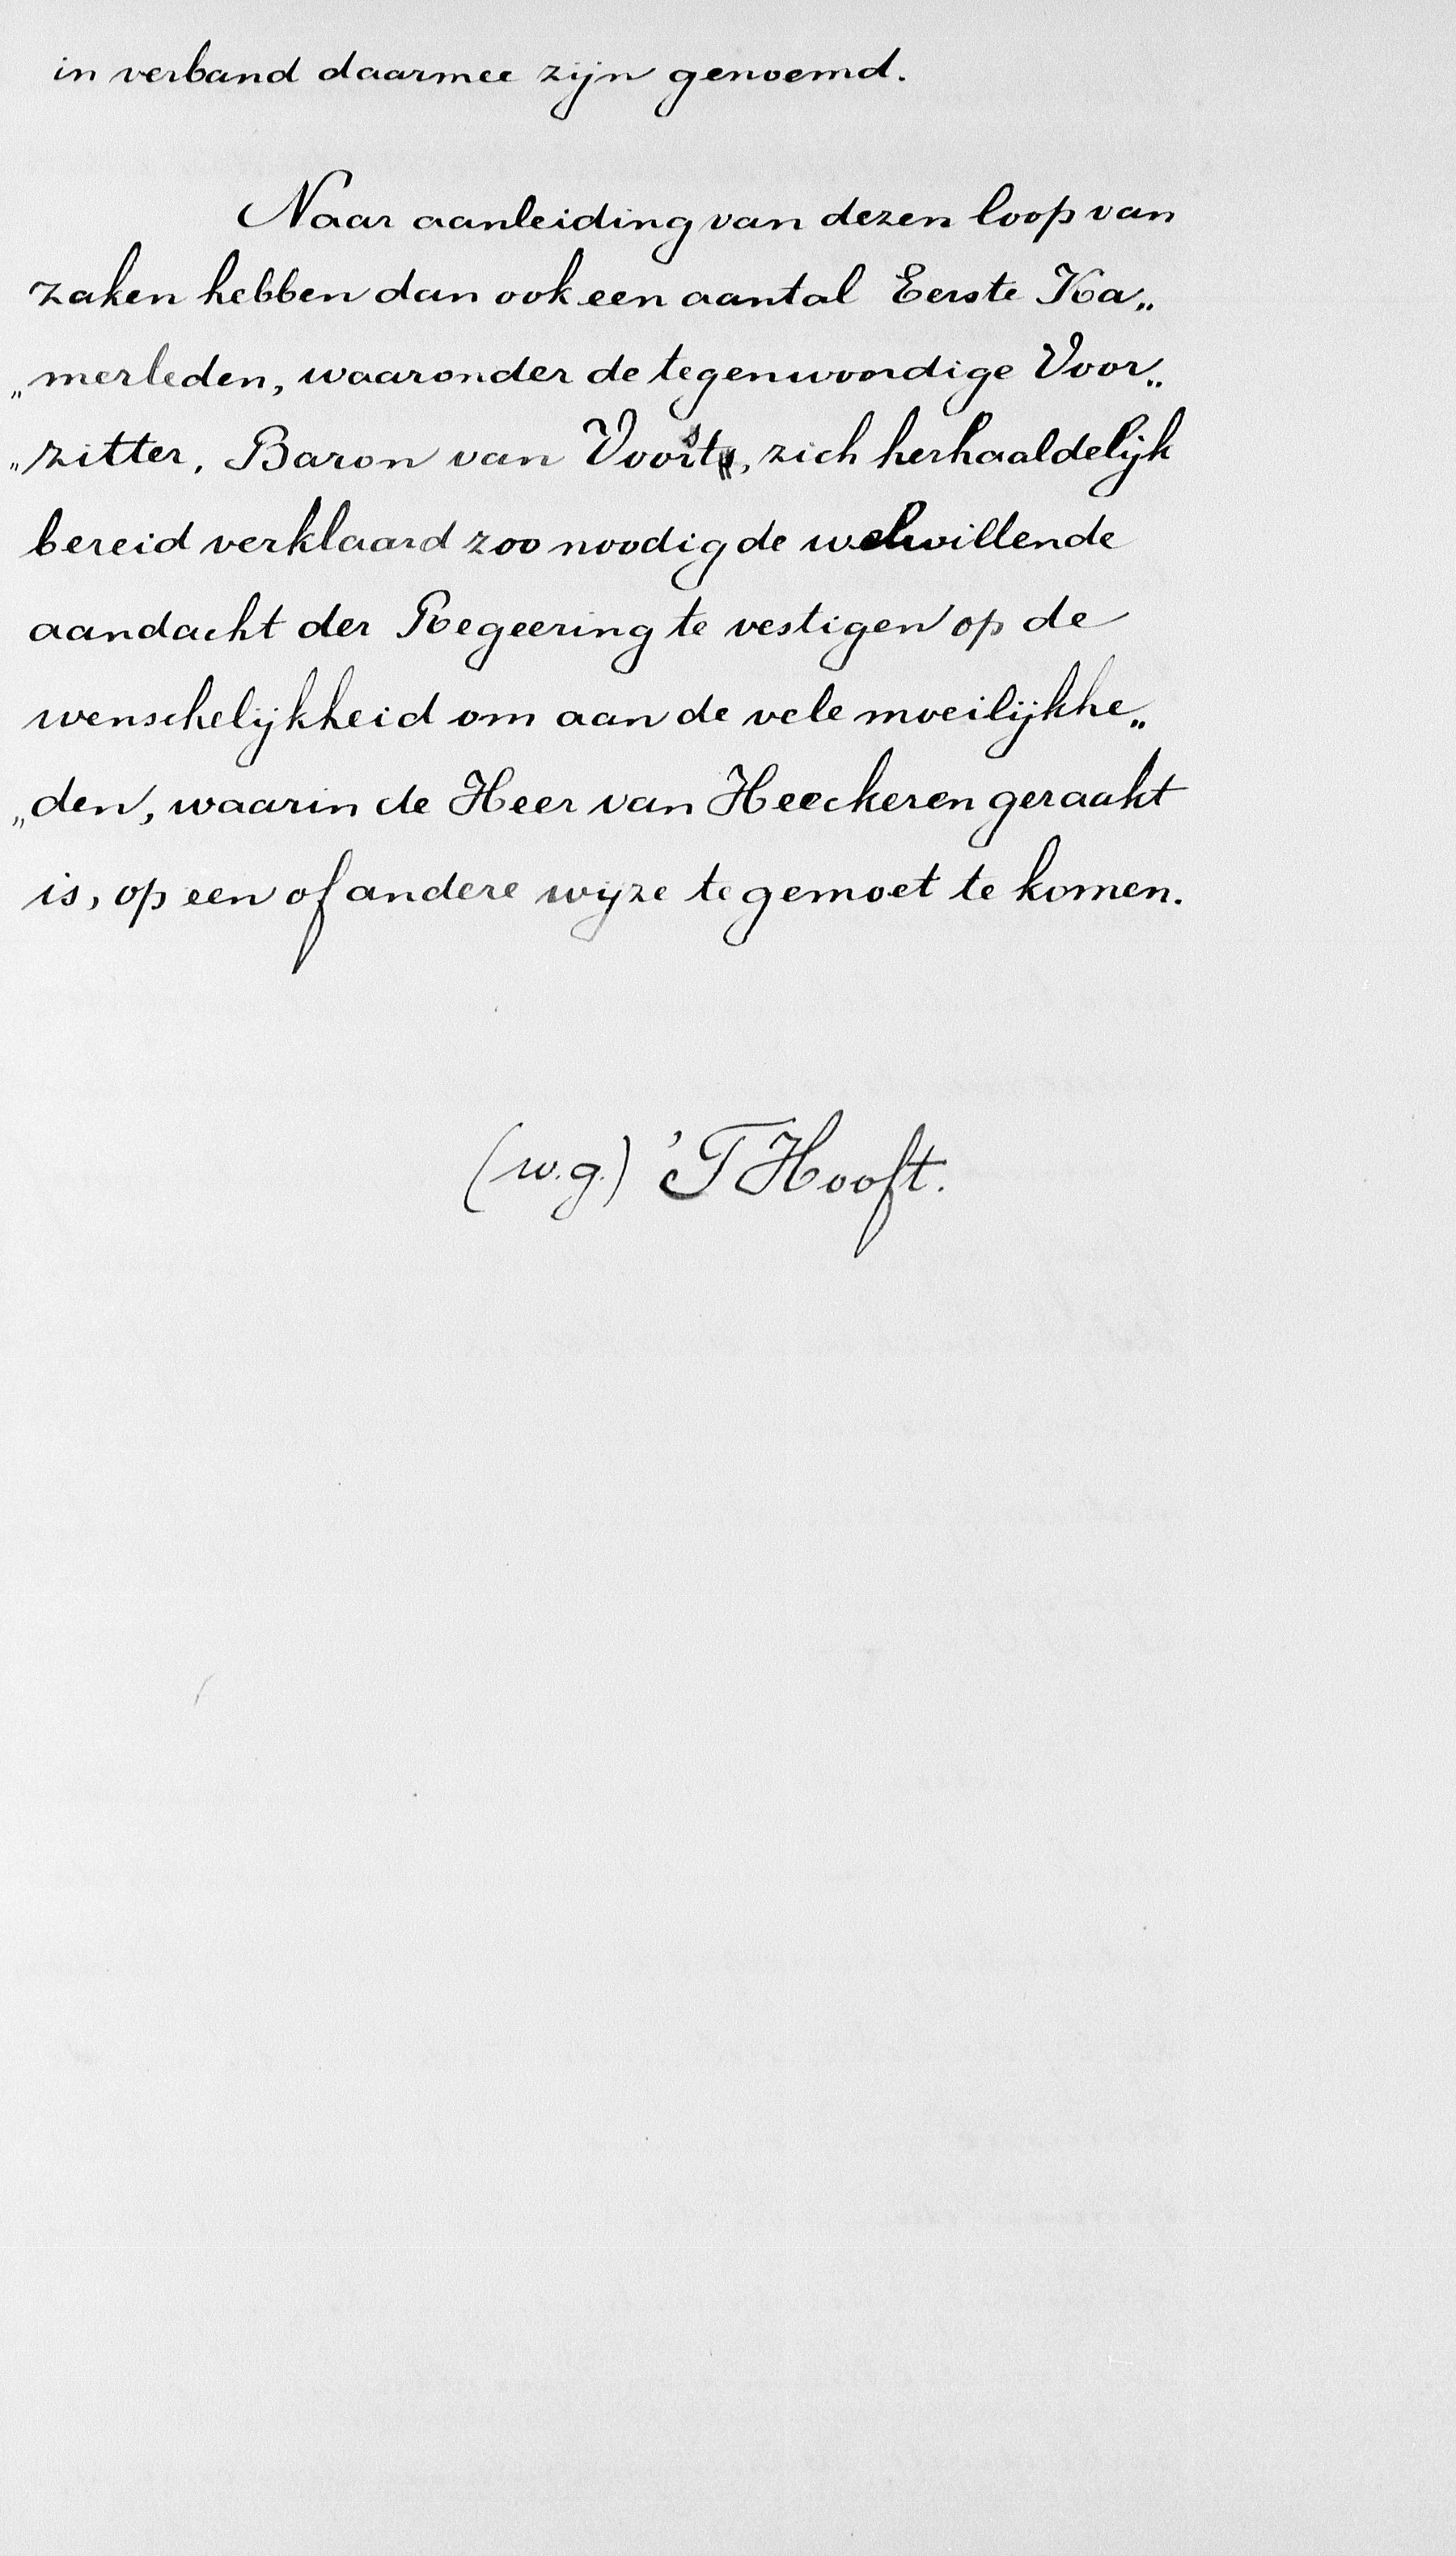 in verband daarmee zijn genoemd.
Naar aanleiding van dezen loop van
zaken hebben dan ook een aantal Eerste Ka„
„merleden, waaronder de tegenwoordige Voor„
„zitter, Baron van Voorst, zich herhaaldelijk
bereid verklaard zoo noodig de welwillende
aandacht der Regeering te vestigen op de
wenschelijkheid om aan de vele moeilijkhe„
„den, waarin de Heer van Heeckeren geraakt
is, op een of andere wijze tegemoet te komen.
(w.g.) 'T Hooft.